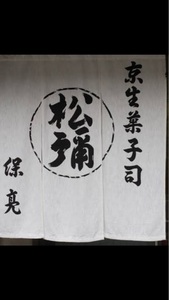 京生菓子司
松彌
保亮